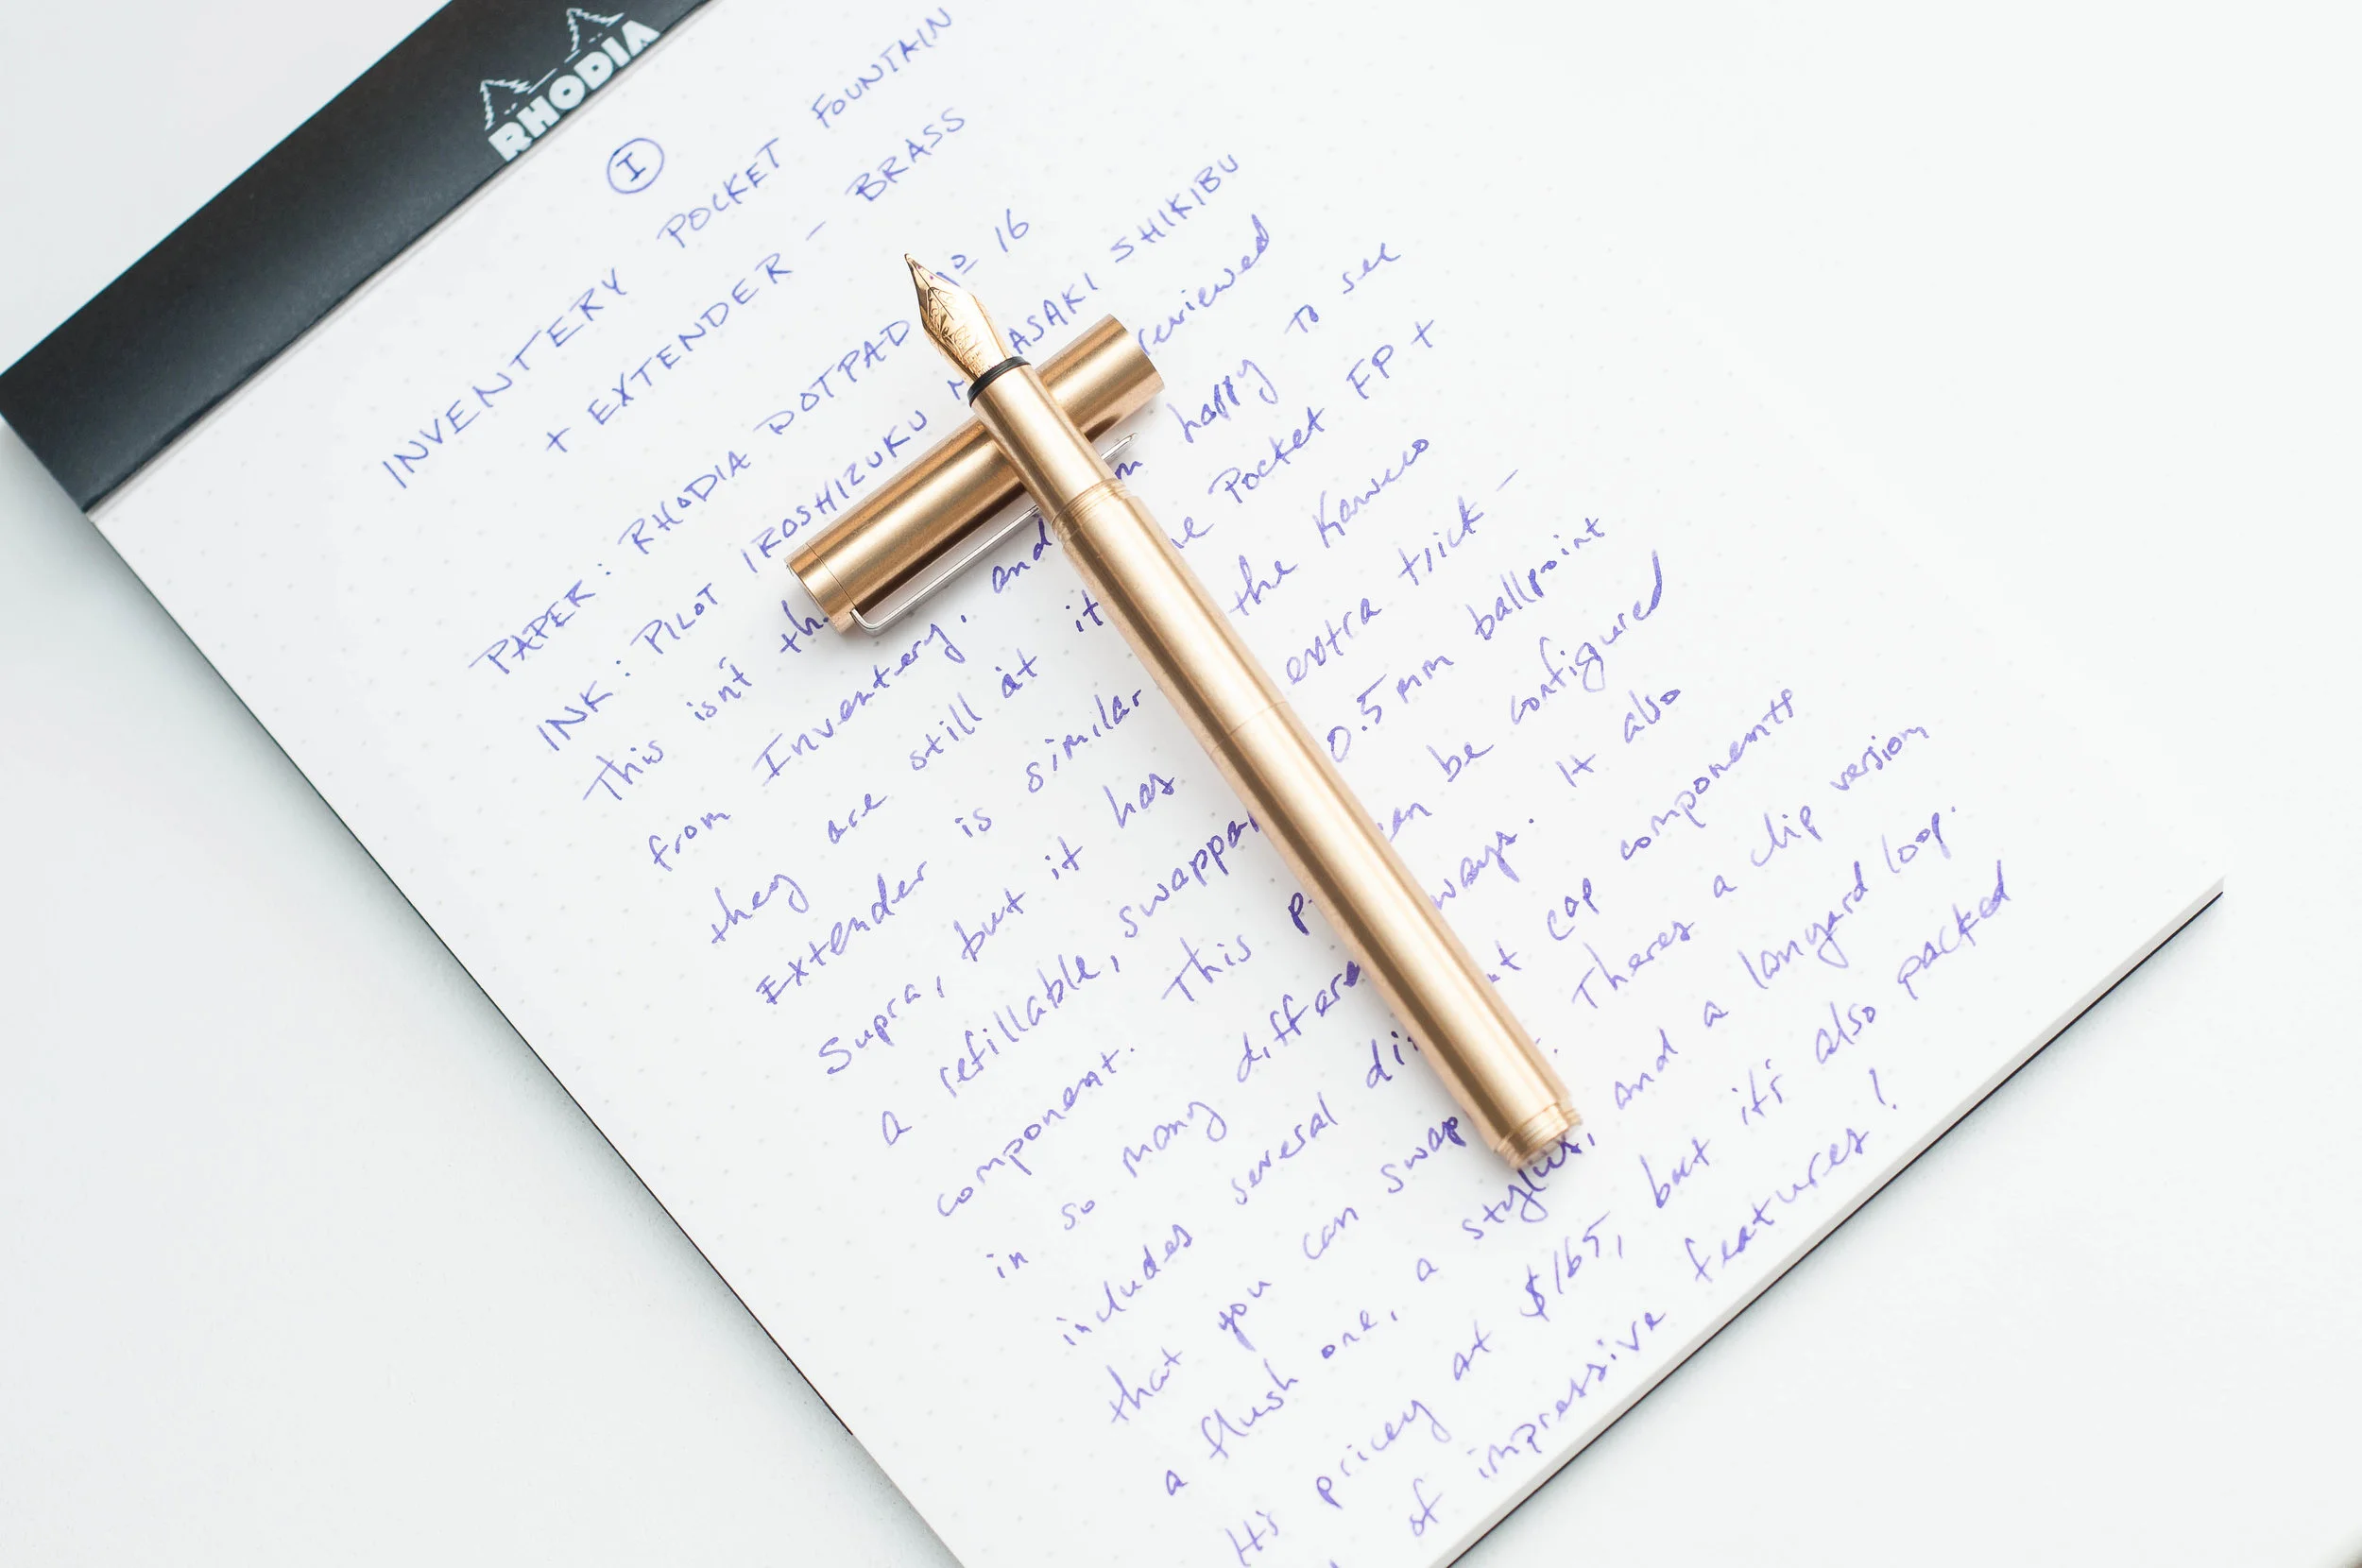 RHODIA
I
INVENTERY POCKET FOUNTAIN
+ EXTENDER - BRASS
PAPER: RHODIA DOTPAD Nº 16
INK: PILOT IROSHIZUKU MURASAKI SHIKIBU
This isn't reviewed
from Inventery, and happy to see
they are still at it Pocket FP +
Extender is similar the Kaweco
Supra, but it has extra trick -
a refillable, 0.5mm ballpoint
component. This can be configured
in so many different ways. It also
includes several different cap components
that you can swap. Theres a clip version
a flush one, a stylus, and a lanyard loop.
It's pricey at $165, but it's also packed
of impressive features!